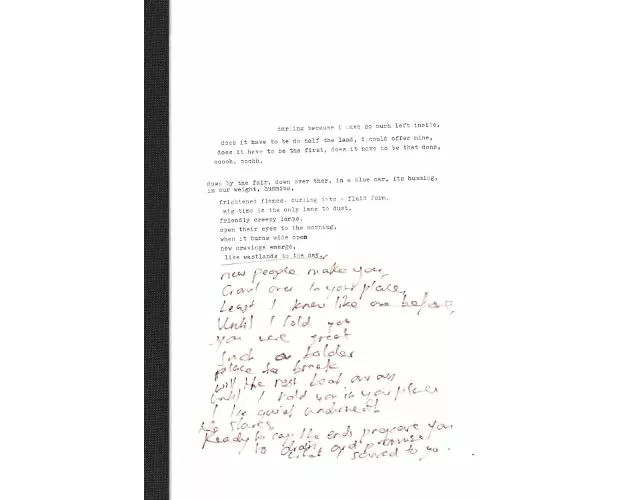 darling because i have so much left inside,
does it have to be do half the land, i could offer mine,
does it have to be the first, does it have to be that done,
ooooh, ooohh,
down by the fair, down over ther, in a blue car, its humming,
in our weight, humming,
frightened flames, curling into a fluid form.
mig-time is the only lane to dust,
friendly creepy lamps,
open their eyes to the morning,
when it burns wide open
new cravings emerge,
like wastlands to the day,
new people make you,
Crawl over in your place,
Least I knew like one before,
Until I told you
you were great
Such a bolder
place to break
will the rest beat
Until I told you in your place
I lie quiet underneath
No
Ready to cap the ends prepare you
to and promise
what I to you.